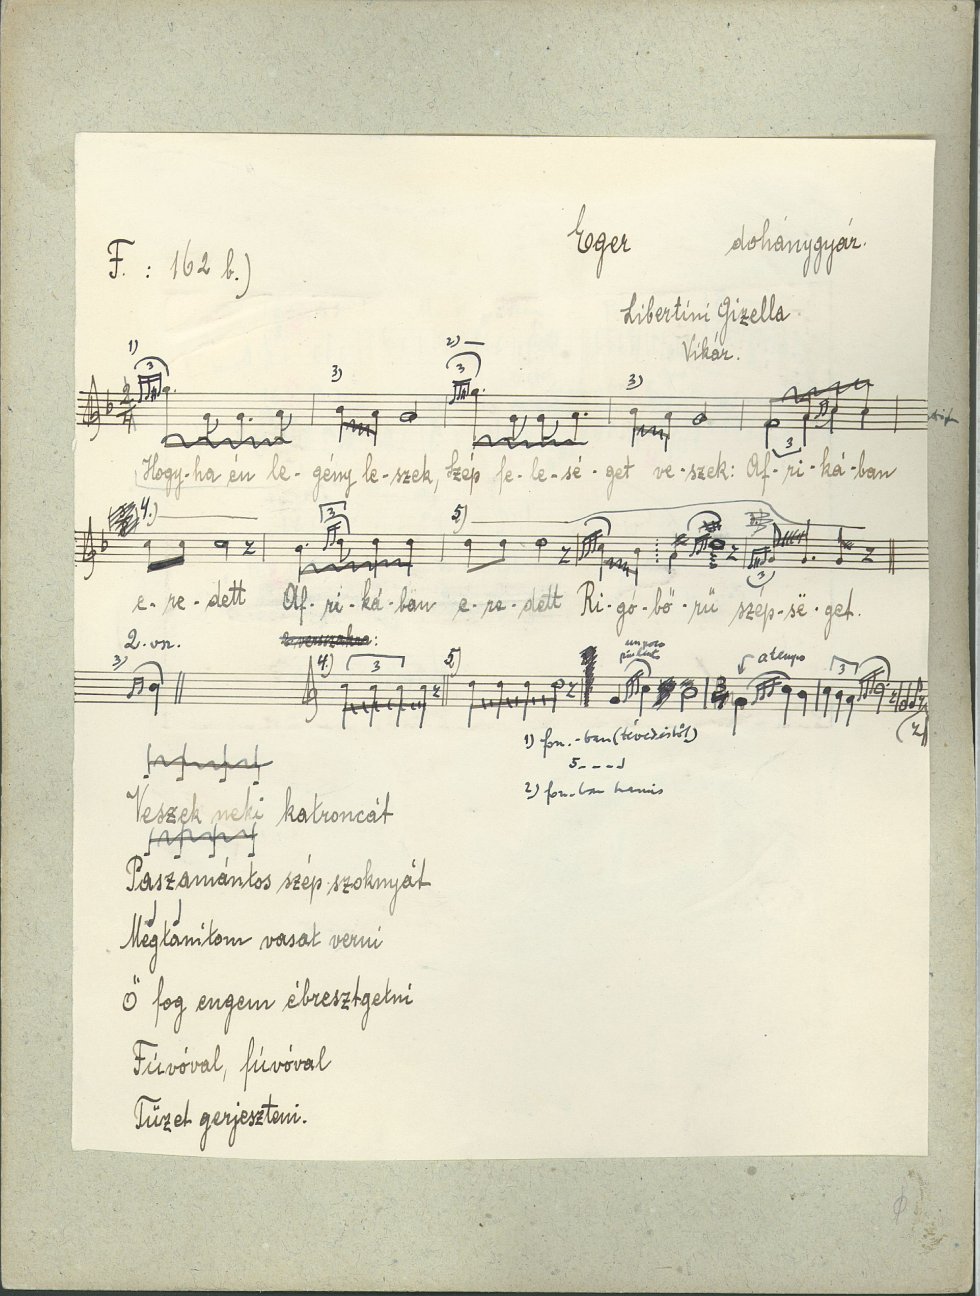 Eger dohánygyár.
F. : 162 b.)
Libertini Gizella
Vikár.
1) 3 3) 2) 3 3)
2/4 3
Hogy-ha én le-gény le-szek, Szép fe-le-sé-get ve-szek: Af-ri-ká-ban
4.) 3 5) 3
e-re-dett Af-ri-ká-ban e-re-dett Ri-gó-bő-rü szép-sé-get.
2. vn.
3) 4.) 3 5) a tempo 3
1) fon.-ban (tévedéstől)
2) fon-ban hamis
Veszek neki katroncát
Paszamántos szép szoknyát
Megtanitom vasat verni
Ő fog engem ébresztgetni
Fúvóval, fúvóval
Tüzet gerjeszteni.